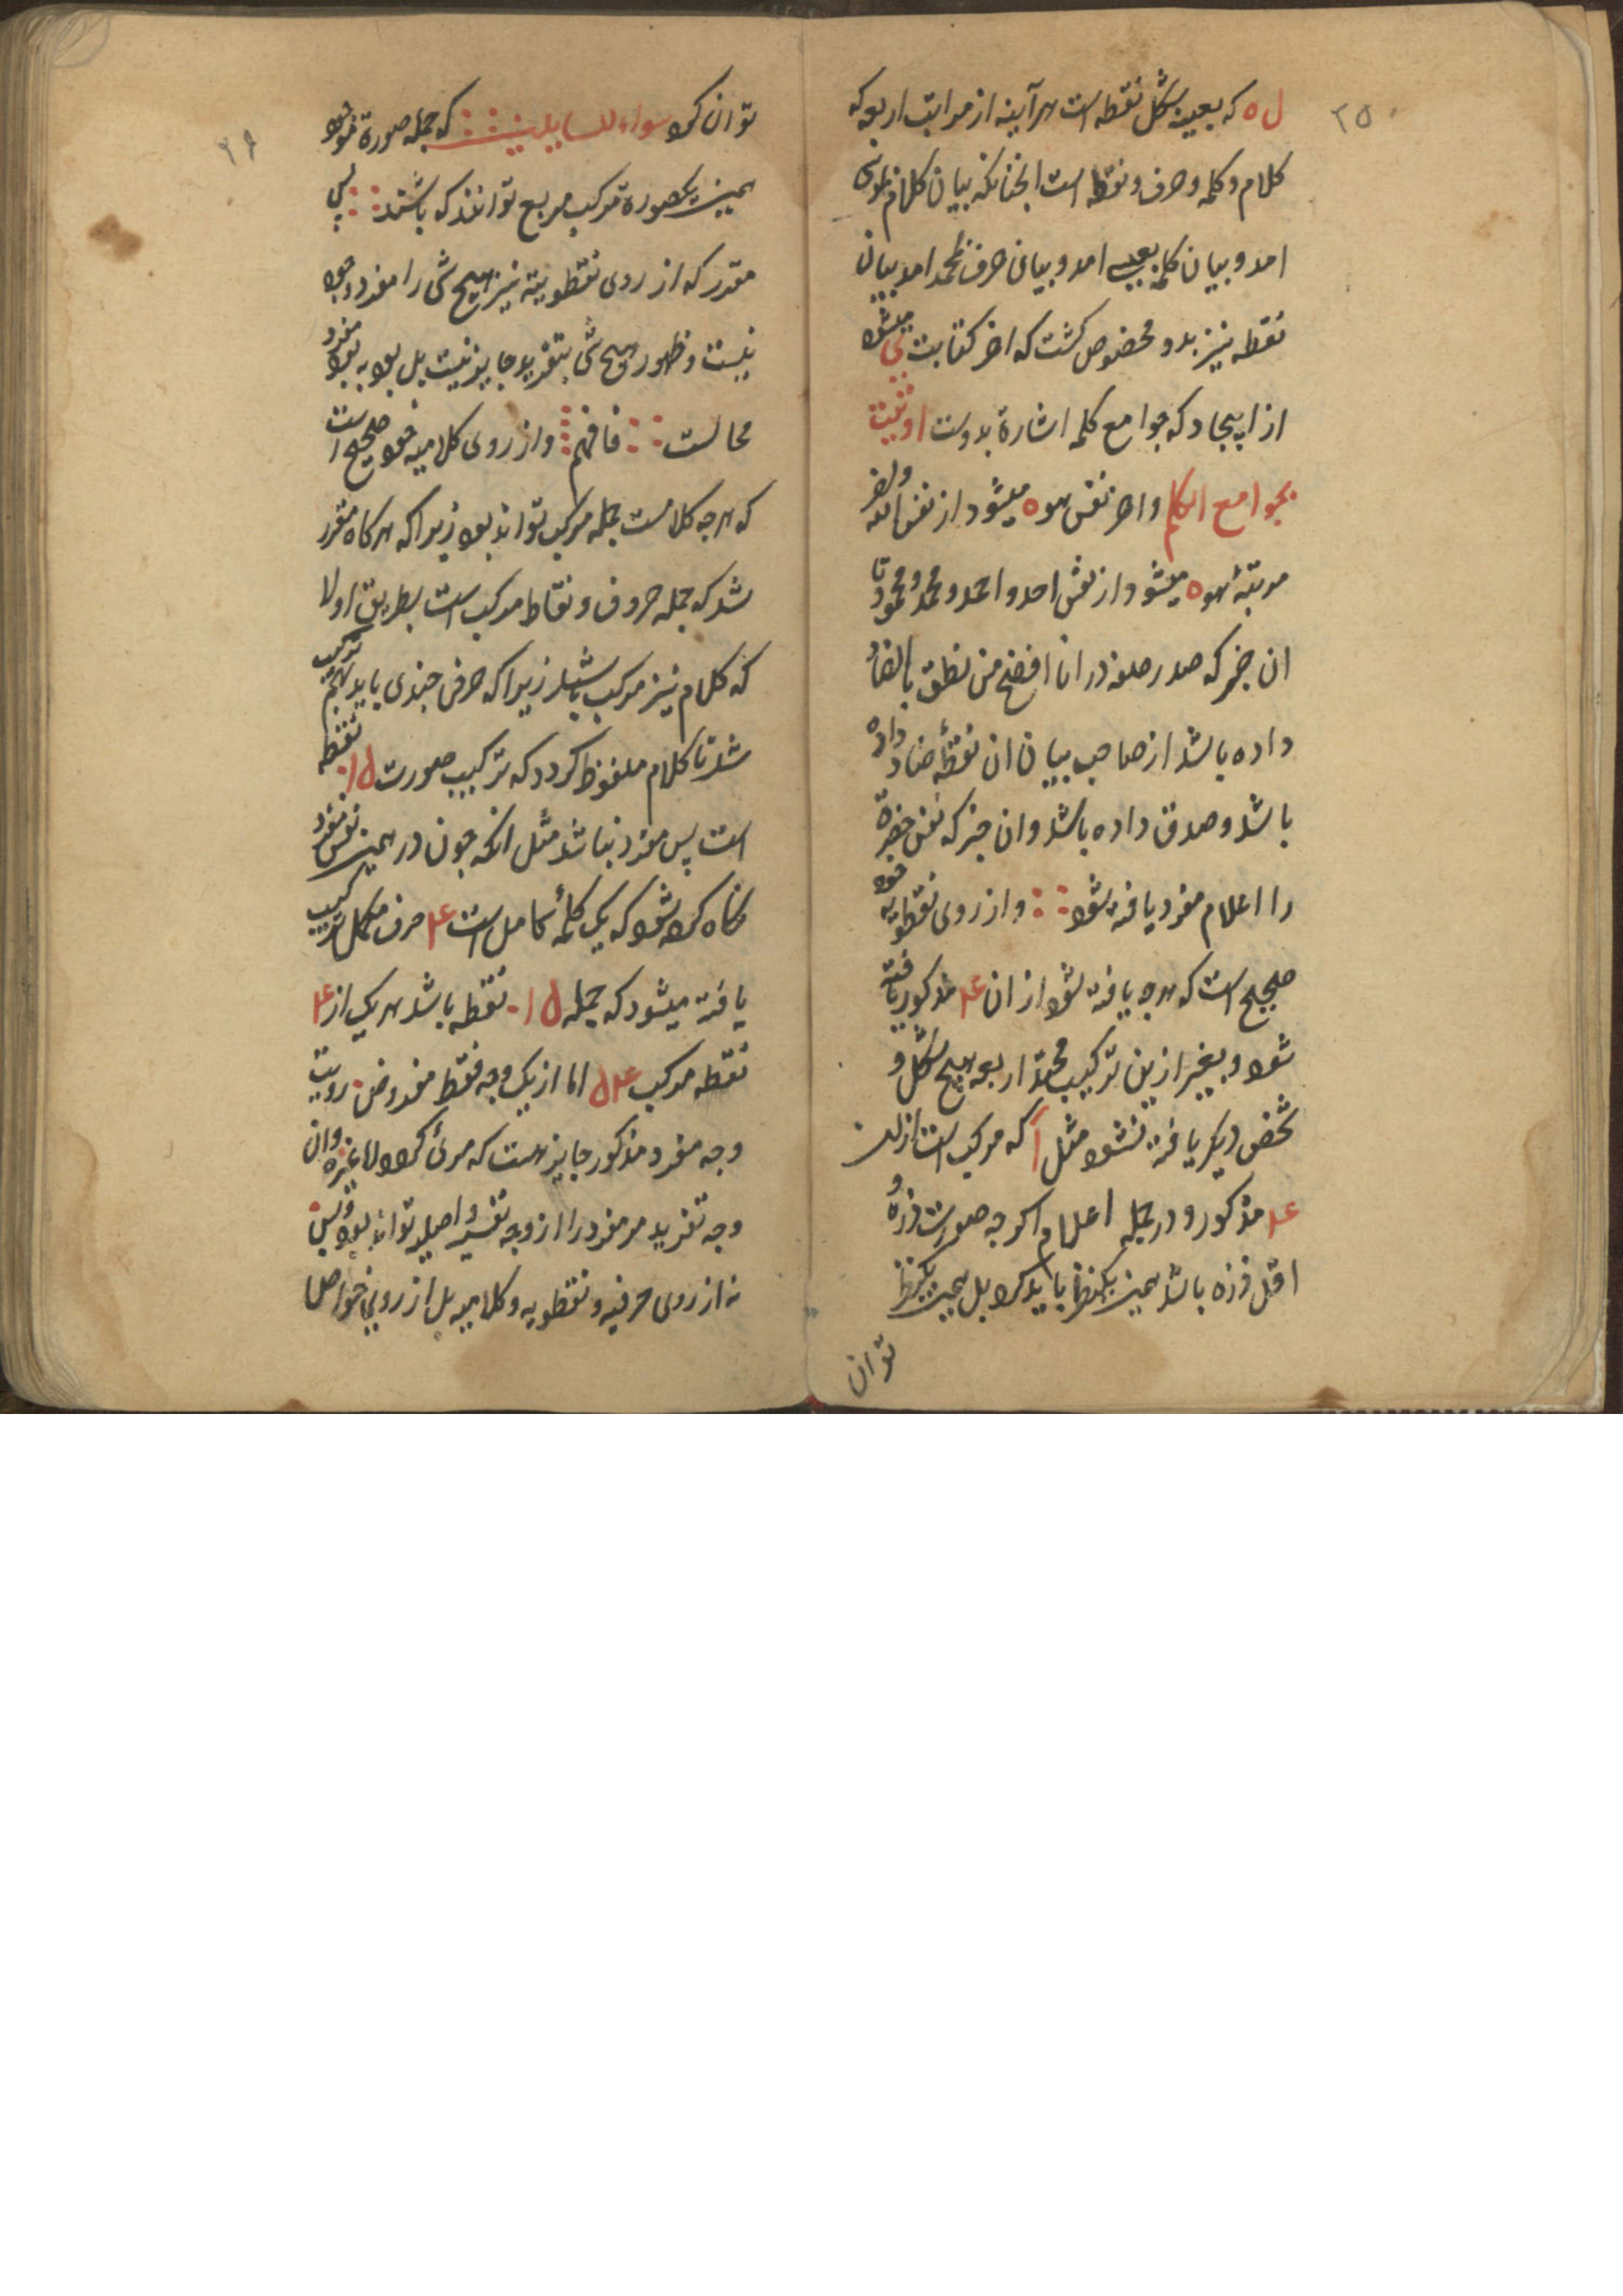 ٢٥
ل ٥ که بعینه شکل نقطه است هرآینه از مراتب اربعه که
کلام و کلمه و حرف و نقطه است الجنانکه بیان کلام بموسی
امد و بیان کلمه بعیسی امد و بیان حرف بمحمد امد بیان
نقطه نیز بدو مخصوص کشت که اخر کتابت بی میشود
از ابجاد که جوامع کلمه اشارة بدوست اوتیت
بجوامع الکلم و اخر نفس هو ٥ میشود از نفس الله و اخر
مرتبهٔ هو ٥ میشود از نفس احد و احمد و محمد و محمود تا
ان خبر که صدر صلعم در انا افصح من نطق بالضاد
داده باشد از صاحب بیان ان نقطهٔ ضاد داده
باشد و صدق داده باشد و ان خبر که نفس
را اعلام مفرد یافته شود و از روی نقطویه خود
صحیح است که هرجه یافته شود از ان ۴ مذکور یافته
شود و بغیر ازین ترکیب اربعه هیچ شکل و
شخص دیکر یافته نشود مثل آ که مرکب است از
۴ مذکور و در جمله اعلام اکرجه صورت ذره و
اقل ذره باشد همین یکنظر باید کرد بل همین یکنظر
توان
٢٦
توان کرد سواء للسایلین که جمله صورة خود
همین یکصورة مرکب مربع توانند که باشند پس
مقدر که از روی نقطویته نیز هیچ شی را مفرد وجود
نیست و ظهور هیچ شی بتفرید جایز نیست بل بود به بود مفرد
محالست فافهم و از روی کلامیه خود صحیح است
که هرجه کلامست جمله مرکب تواند بود زیرا که هرکاه مقرر
شد که جمله حروف و نقاط مرکب است بطریق اولا
که کلام نیز مرکب باشد زیرا که حرفی جندی باید بهم ترکیب
شد تا کلام ملفوظ کردد که ترکیب صورت ۱۵ نقطه
است پس مفرد نباشد مثل انکه جون در همین نفس مفرد
نکاه کرده شود که یک کلمهٔ کامل است ۴ حرف مکمل ترکیب
یافته میشود که جمله ۱۵ نقطه باشد هر یک از ۴
نقطه مرکب اما از یک وجه فقط مفروض رویت
وجه مفرد مذکور جایز هست که مرئی کردد لا غیره و ان
وجه تفرید مر مفرد را از وجه تفسیر و اصلیه تواند بود و بس
نه از روی حرفیه و نقطویه و کلامیه بل از روی خواصها